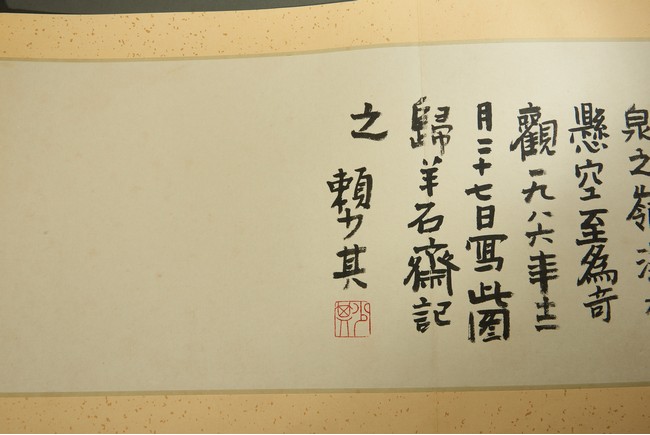 泉之嶺
懸空至為奇
觀一九八六年十二
月二十七日寫此圖
歸羊石齋記
之 賴少其
少其